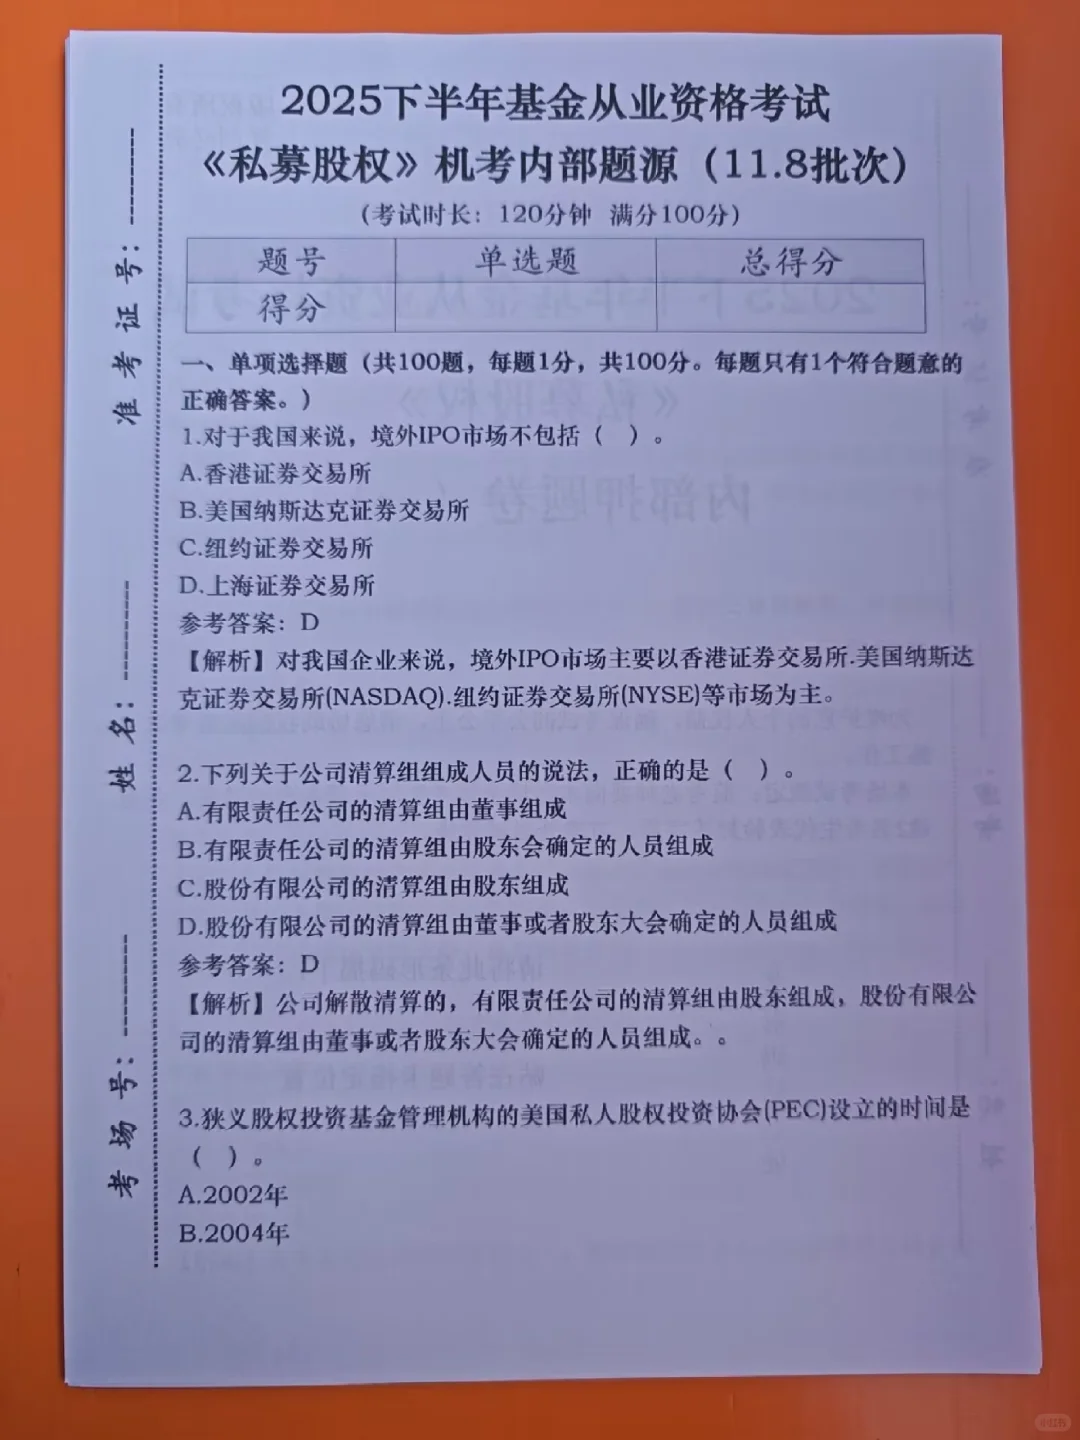 2025下半年基金从业资格考试
《私募股权》机考内部题源（11.8批次）
（考试时长：120分钟 满分100分）
题号 单选题 总得分
得分
一、单项选择题（共100题，每题1分，共100分。每题只有1个符合题意的
正确答案。）
1.对于我国来说，境外IPO市场不包括（ ）。
A.香港证券交易所
B.美国纳斯达克证券交易所
C.纽约证券交易所
D.上海证券交易所
参考答案：D
【解析】对我国企业来说，境外IPO市场主要以香港证券交易所.美国纳斯达
克证券交易所(NASDAQ).纽约证券交易所(NYSE)等市场为主。
2.下列关于公司清算组组成人员的说法，正确的是（ ）。
A.有限责任公司的清算组由董事组成
B.有限责任公司的清算组由股东会确定的人员组成
C.股份有限公司的清算组由股东组成
D.股份有限公司的清算组由董事或者股东大会确定的人员组成
参考答案：D
【解析】公司解散清算的，有限责任公司的清算组由股东组成，股份有限公
司的清算组由董事或者股东大会确定的人员组成。。
3.狭义股权投资基金管理机构的美国私人股权投资协会(PEC)设立的时间是
（ ）。
A.2002年
B.2004年
准考证号：
姓名：
考场号：
小红书